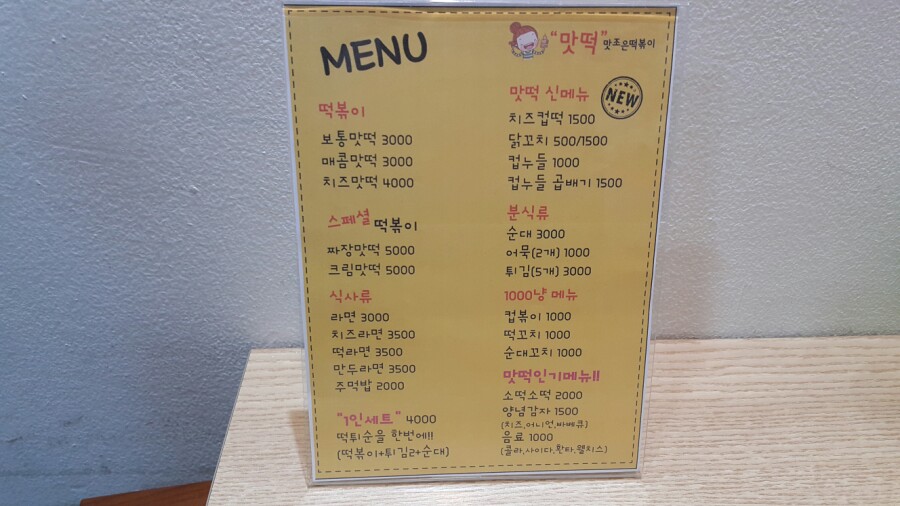 MENU
떡볶이
보통맛떡 3000
매콤맛떡 3000
치즈맛떡 4000
스페셜 떡볶이
짜장맛떡 5000
크림맛떡 5000
식사류
라면 3000
치즈라면 3500
떡라면 3500
만두라면 3500
주먹밥 2000
"1인세트" 4000
떡튀순을 한번에!!
(떡볶이+튀김2+순대)
"맛떡" 맛조은떡볶이
맛떡 신메뉴
NEW
치즈컵떡 1500
닭꼬치 500/1500
컵누들 1000
컵누들 곱배기 1500
분식류
순대 3000
어묵(2개) 1000
튀김(5개) 3000
1000냥 메뉴
컵볶이 1000
떡꼬치 1000
순대꼬치 1000
맛떡인기메뉴!!
소떡소떡 2000
양념감자 1500
(치즈,어니언,바베큐)
음료 1000
(콜라,사이다,환타,웰치스)